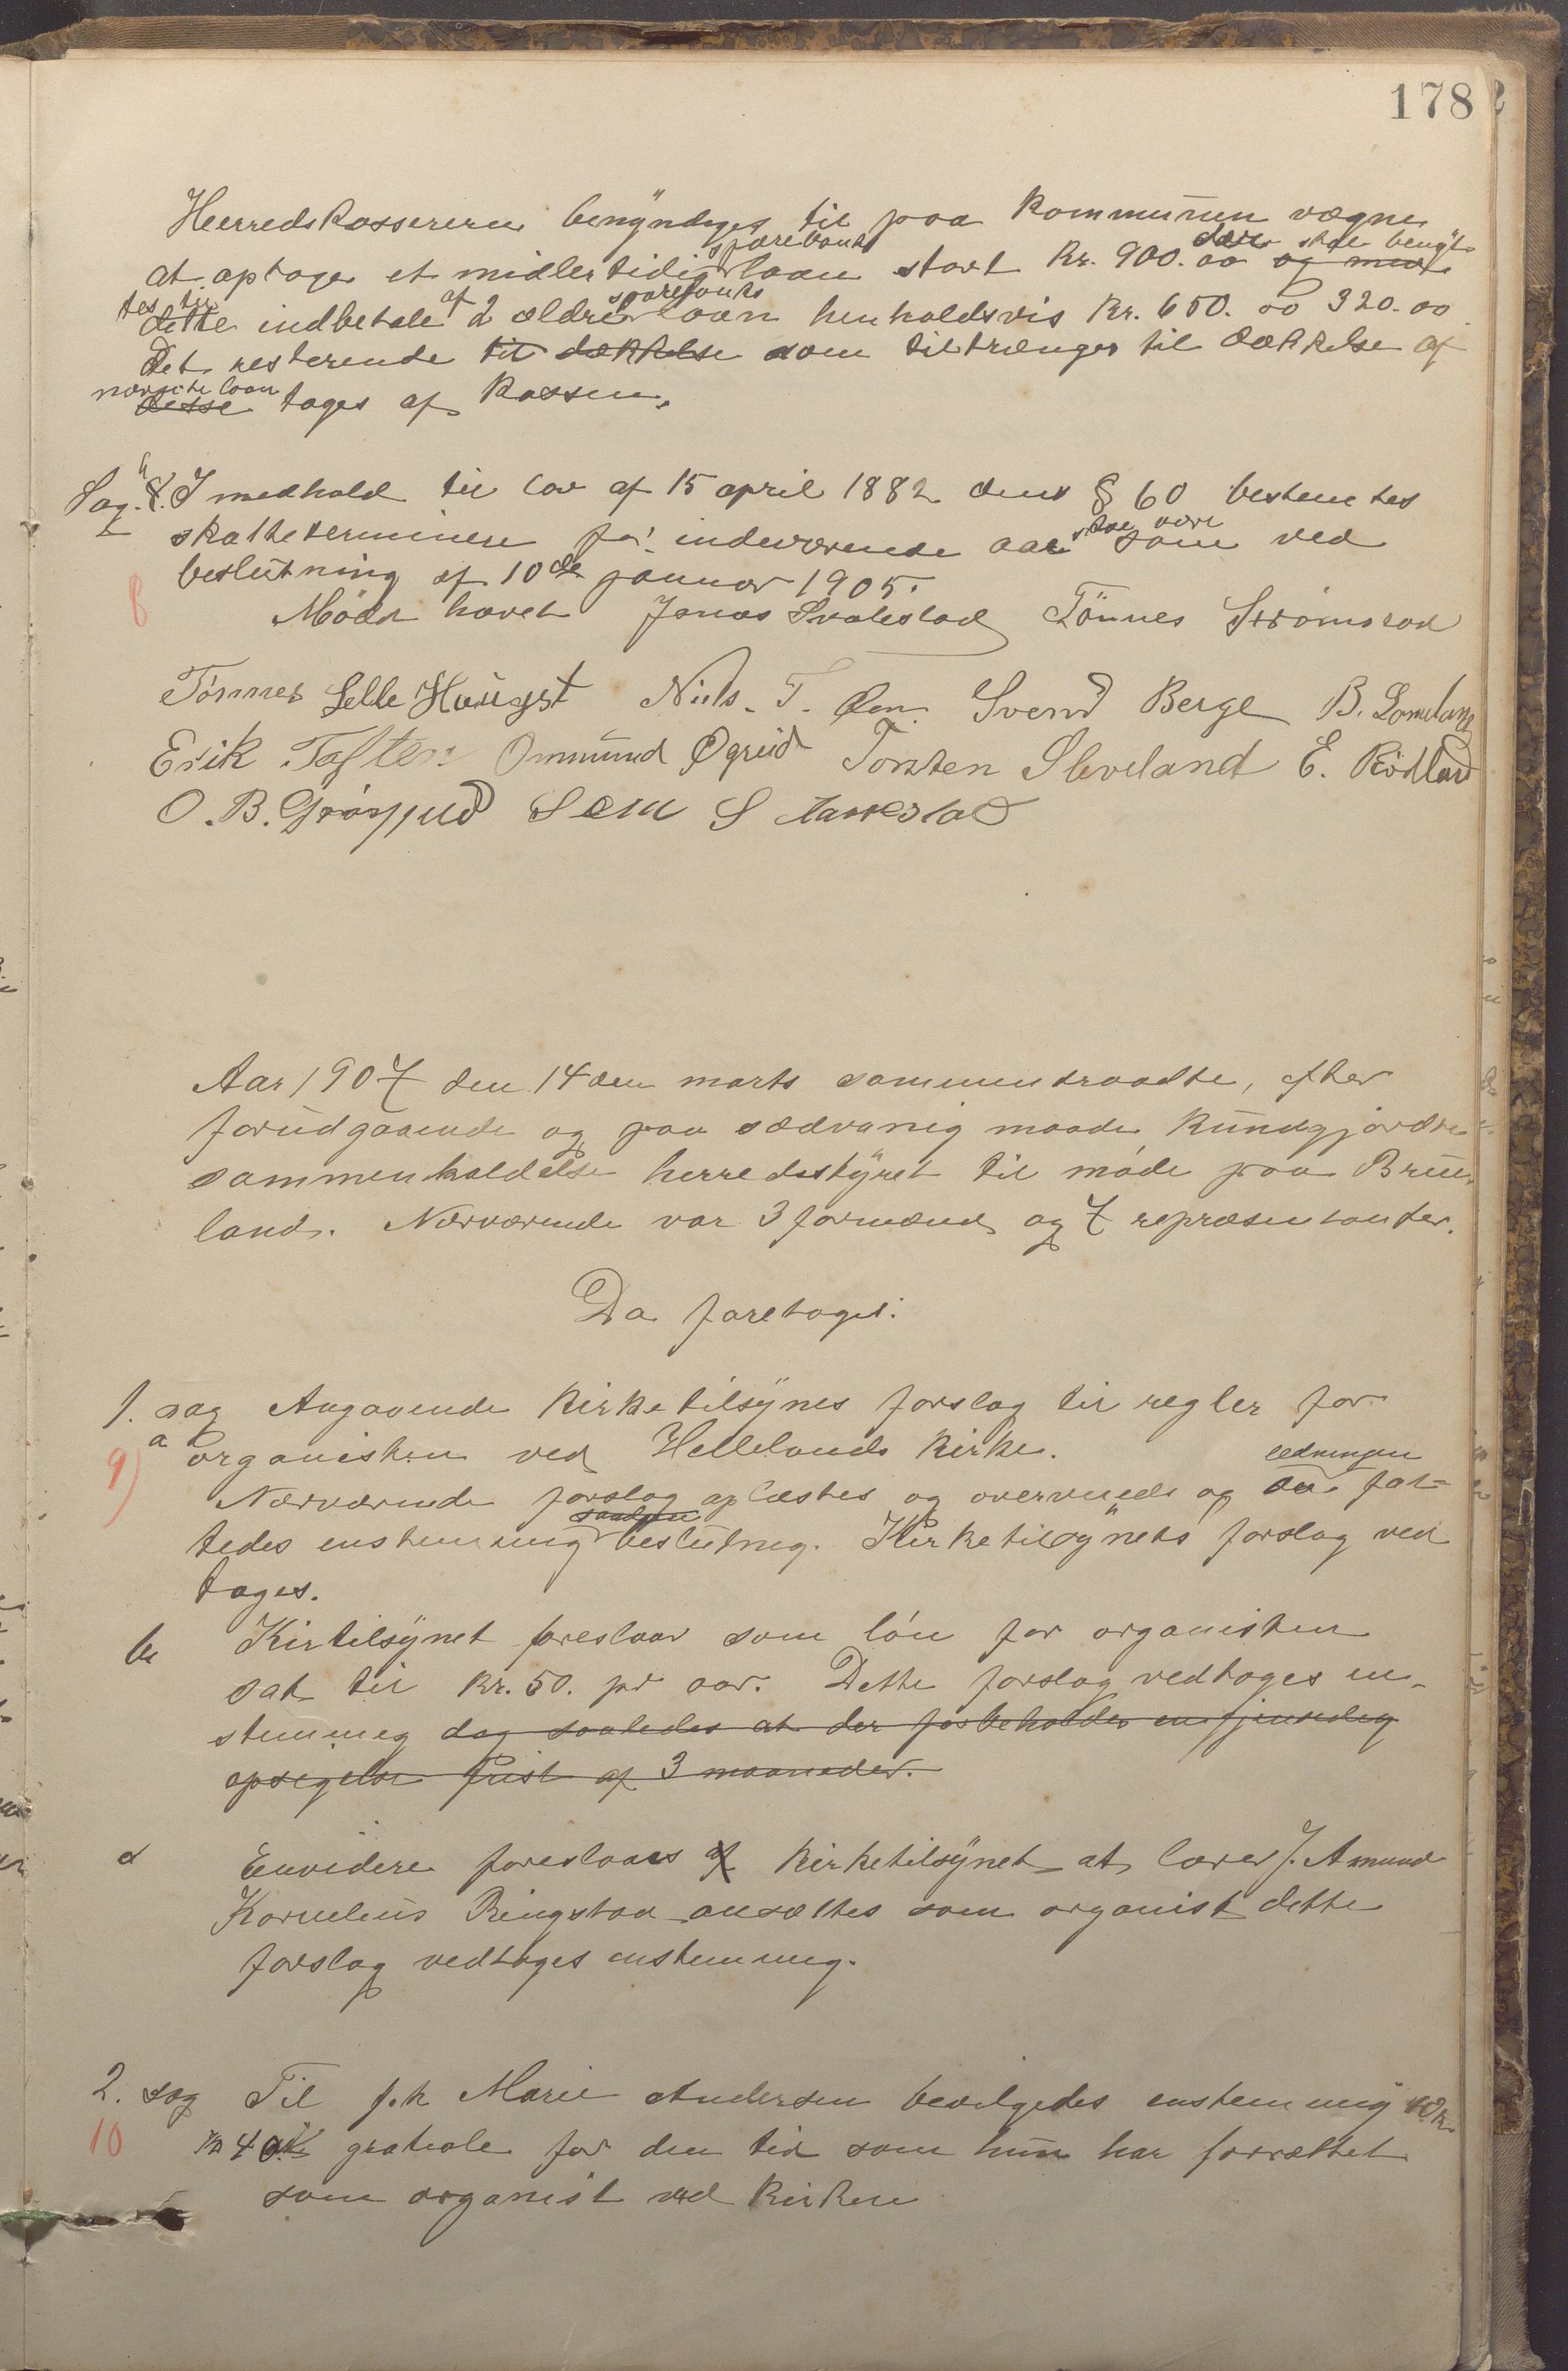 178
Herredskassereren bemyndiges til paa kommunen vægne
sparebank der skal benyt
at optage et midlertidig laan stort Kr. 900.00 og med
tes til af sparebanks
dette indbetale 2 ældre laan henholdsvis Kr. 650.00 320.00
Det resterende til dækkelse som tiltrænges til dækkelse af
nævnte laan
disse tages af kassen.
Sag. 8. I medhold til lov af 15 april 1882 dens § 60 bestemtes
skal være
skatteterminene for indeværende aar som ved
beslutning af 10de januar 1905.
8
Møde hævet Jonas Svalestad Tönnes Strømstad
Tönnes Selle Haugst Niels. T. Øen Svend Berge B. Lomeland
Erik Tasten Ommund Øgreid Torsten Sleveland E. Rödland
O. B. Grøsfjeld Sem S Aarrestad
Aar 1907 den 14den marts sammentraadte, efter
forudgaaende og paa sædvanlig maade kundgjordte
sammenkaldelse herredsstyret til møde paa Brue
land. Nærværende var 3 formænd og 7 repræsentanter.
Da foretoges:
1. sag Angaaende kirketilsynes forslag til regler for
a organisten ved Hellelands kirke.
9) ledningen
Nærværende forslag oplæstes og overveiedes og der fat=
saadan
tedes enstemmig beslutnig. Kirketilsynets forslag ved
tages.
b Kirtilsynet foreslaar som løn for organisten
sat til kr. 50. pr aar. Dette forslag vedtoges en-
stemmig dog saaledes at der forbeholdes en gjensidig
opsigelse frist af 3 maaneder.
d Envidere foreslaaes af kirketilsynet at lærer J. Amund
Kornelius Ringstad ansættes som organist dette
forslag vedtoges enstemmig.
2. sag Til frk Marie Andersen bevilgedes enstemmig
10 kr 40 gratiale for den tid som hun har forrættet
som organist ved kirken